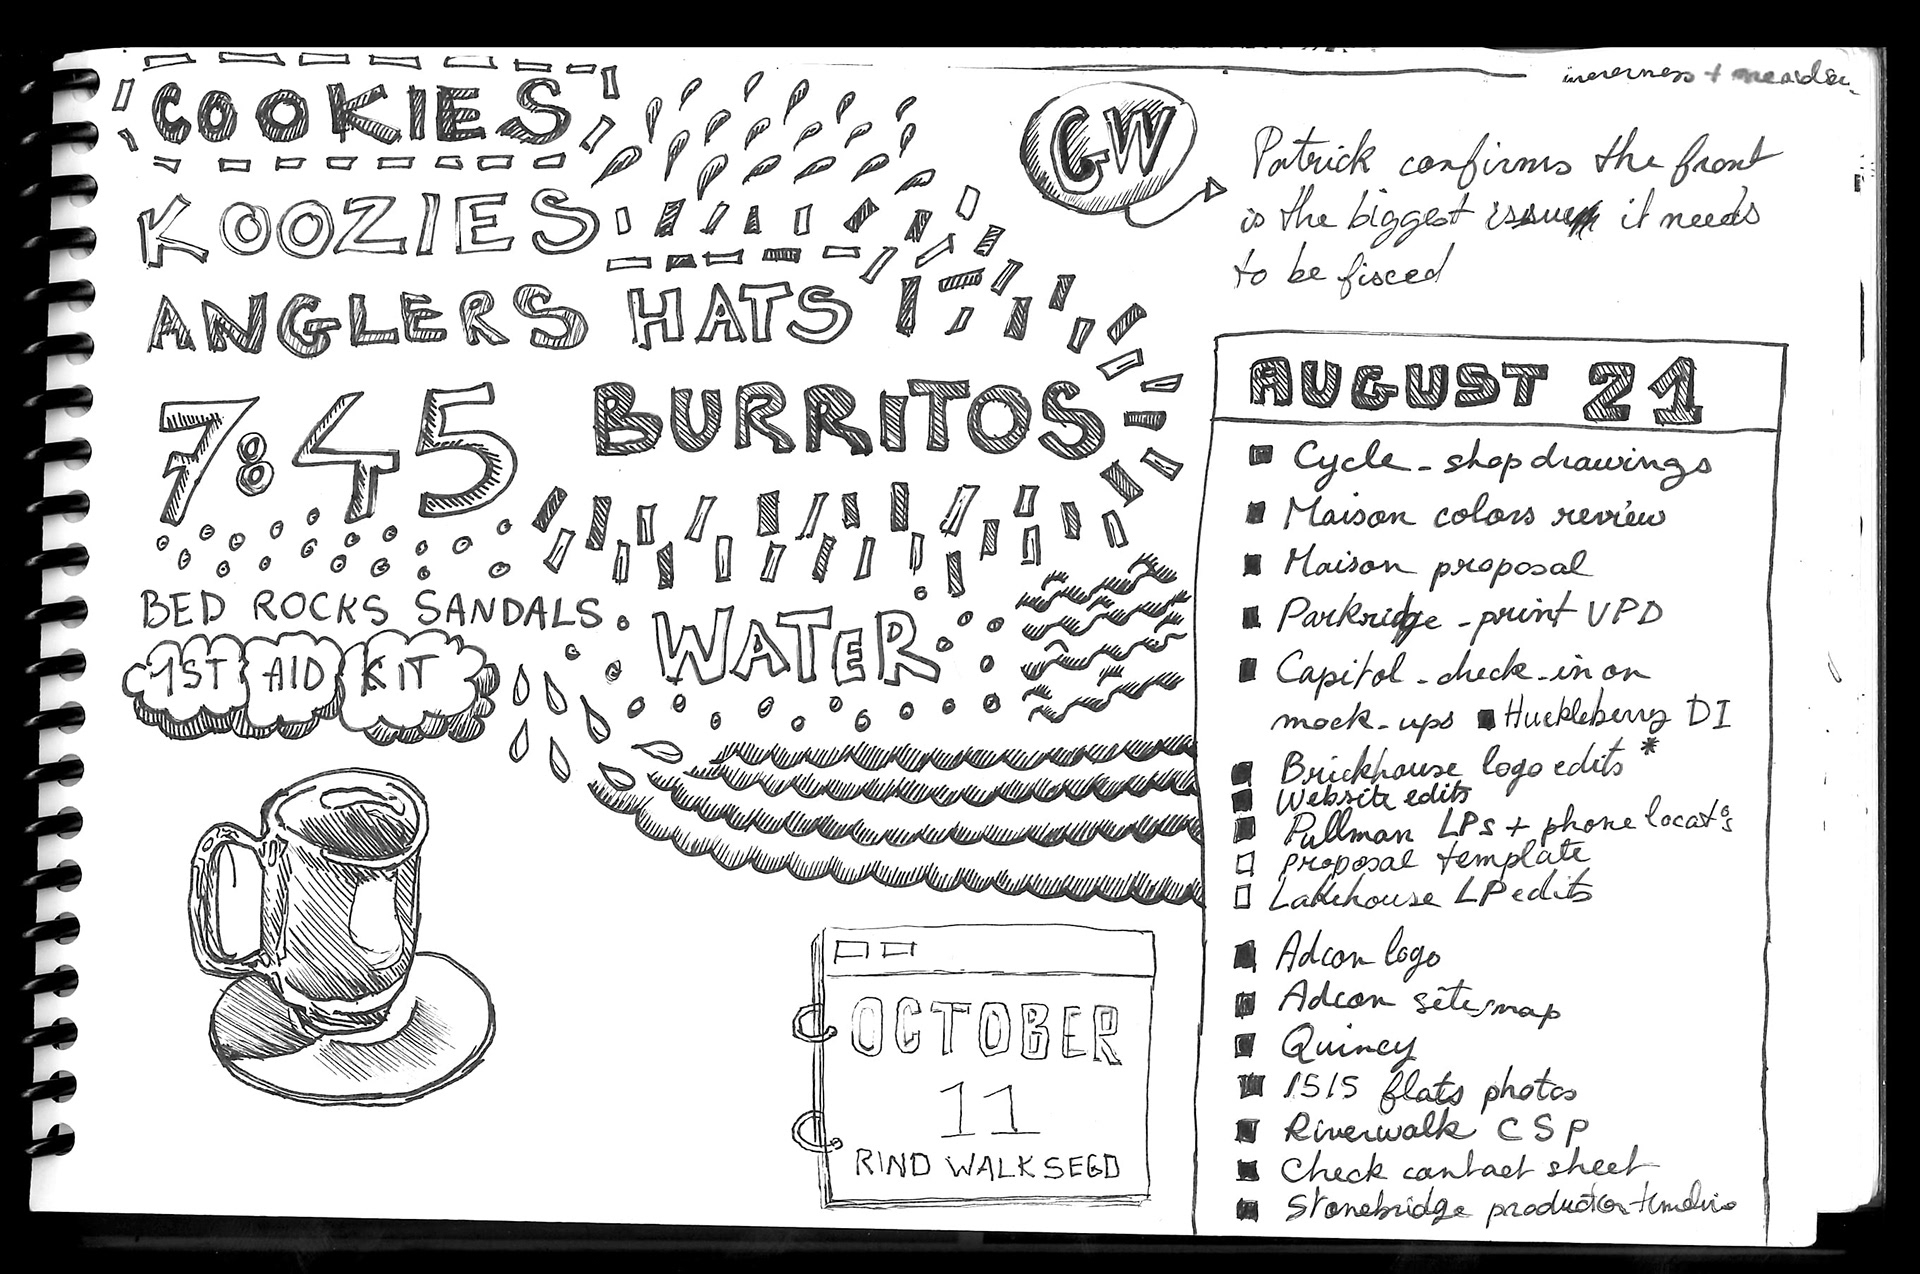 COOKIES
KOOZIES
ANGLERS HATS
7:45 BURRITOS
BED ROCKS SANDALS
WATER
1ST AID KIT
OCTOBER
11
RIND WALK SEGD
GW
Patrick confirms the front
is the biggest issue it needs
to be fixed
AUGUST 21
Cycle - shop drawings
Maison colors review
Maison proposal
Parkridge - print VPD
Capitol - check-in on
mock-ups Huckleberry DI
Brickhouse logo edits *
Website edits
Pullman LPs + phone locat°s
proposal template
Lakehouse LP edits
Adcon logo
Adcon site/map
Quincy
1515 flats photos
Riverwalk CSP
Check contact sheet
Stonebridge production